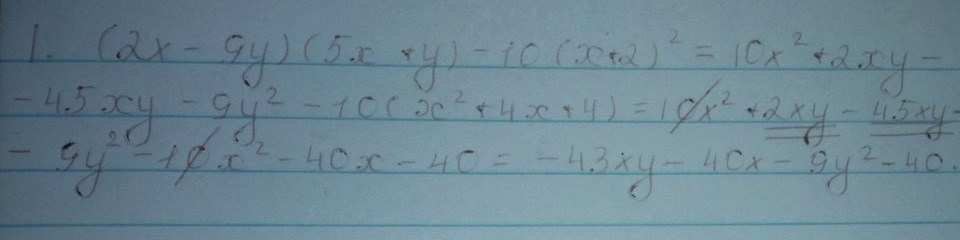 1. (2x - 9y)(5x + y) - 10(x+2)² = 10x² + 2xy -
- 45xy - 9y² - 10(x² + 4x + 4) = 10x² + 2xy - 45xy -
- 9y² - 10x² - 40x - 40 = -43xy - 40x - 9y² - 40.